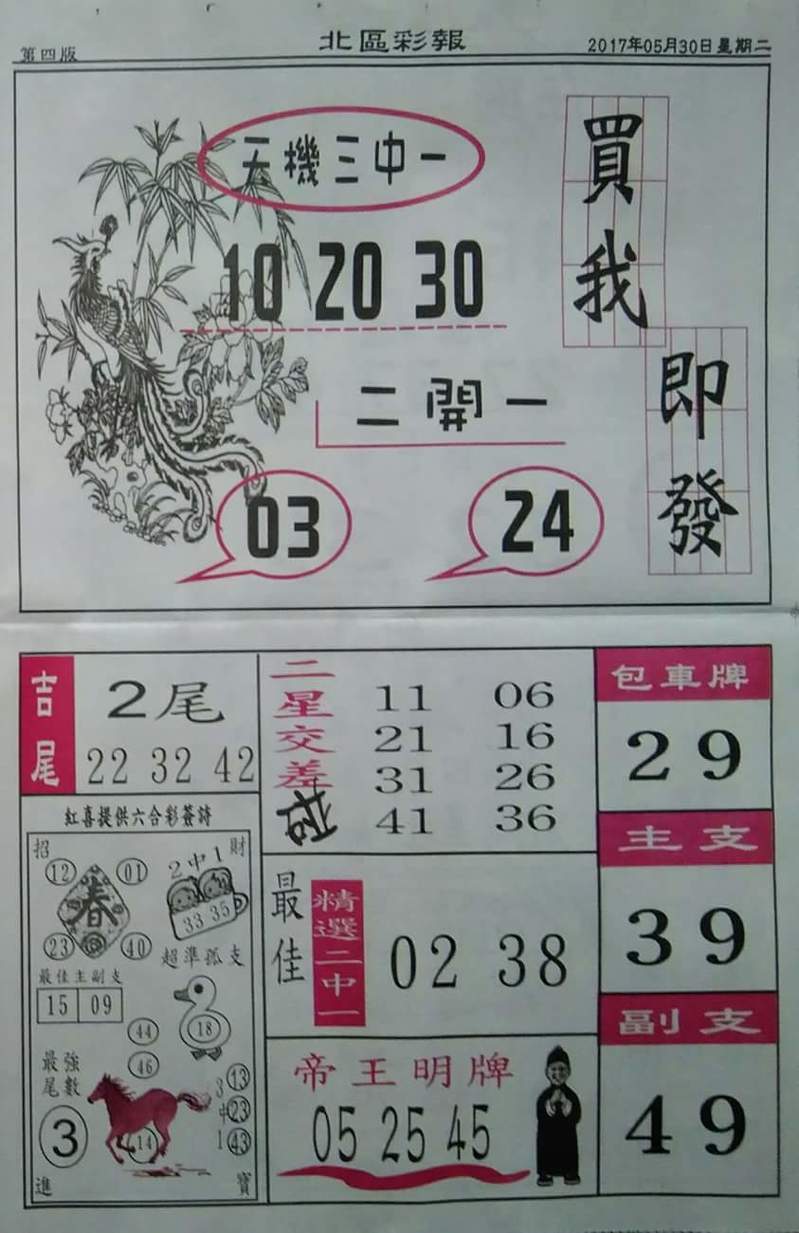 第四版
北區彩報
2017年05月30日星期二
天機三中一
10 20 30
二開一
03
24
買我
即發
吉尾
2尾
22 32 42
二星交差
11 06
21 16
31 26
41 36
包車牌
29
主支
39
副支
49
最佳
精選二中一
02 38
帝王明牌
05 25 45
紅喜提供六合彩簽詩
招
財
12
01
春
23
40
2中1
33 35
超準孤支
18
最佳主副支
15 09
44
46
最強
尾數
3
14
3中1
13
23
43
進
寶